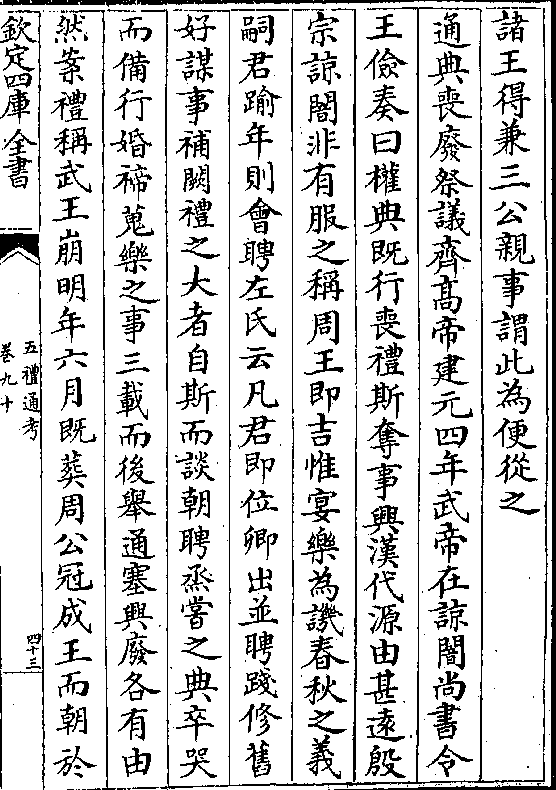 諸王得兼三公親事謂此為便從之
通典喪廢祭議齊髙帝建元四年武帝在諒闇尚書令
王儉奏曰權典既行喪禮斯奪事興漢代源由甚逺殷
宗諒闇非有服之稱周王即吉惟宴樂為譏春秋之義
嗣君踰年則會聘左氏云凡君即位卿出並聘踐修舊
好謀事補闕禮之大者自斯而談朝聘烝嘗之典卒哭
而備行婚禘蒐樂之事三載而後舉通塞興廢各有由
然案禮稱武王崩明年六月既葬周公冠成王而朝於
欽定四庫全書
五禮通考
卷九十
四十三